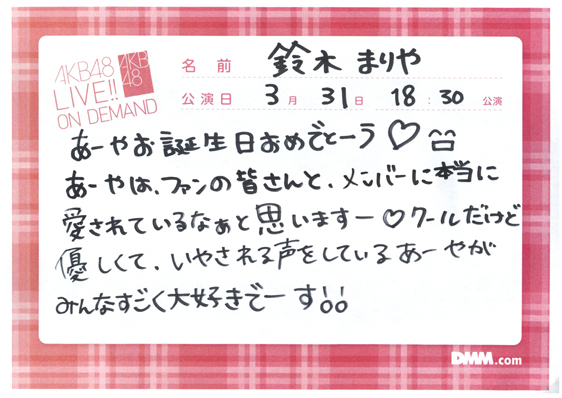 AKB48
LIVE!!
ON DEMAND
AKB
48
名前 鈴木まりや
公演日 3月31日 18:30公演
あーやお誕生日おめでとーう♡
あーやは、ファンの皆さんと、メンバーに本当に
愛されているなぁと思いますー♡クールだけど
優しくて、いやされる声をしているあーやが
みんなすごく大好きでーす!!
DMM.com